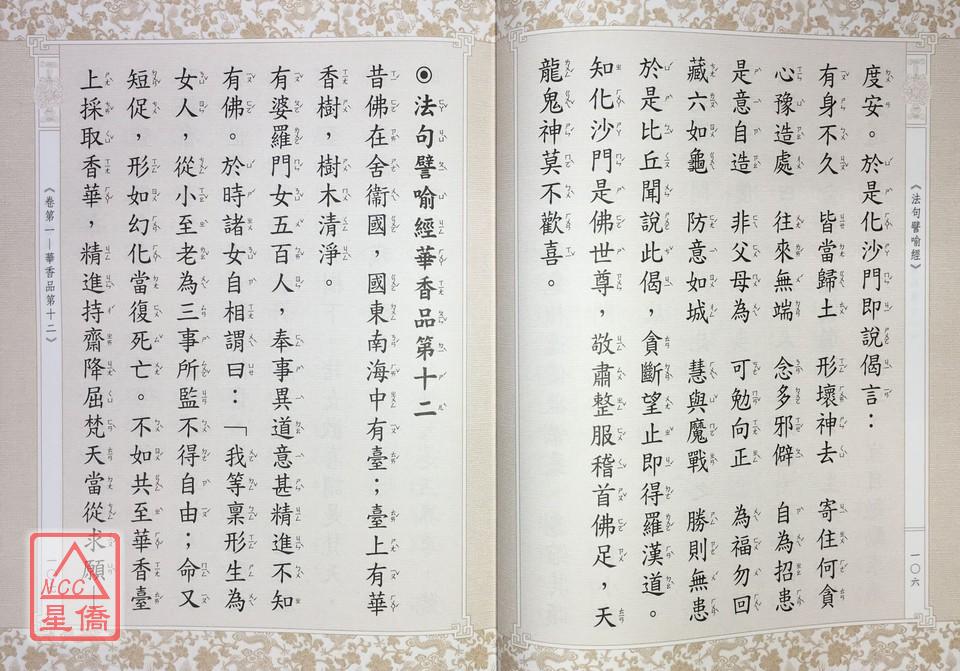 《法句譬喻經》
度安。於是化沙門即說偈言：
有身不久　皆當歸土　形壞神去　寄住何貪
心豫造處　往來無端　念多邪僻　自為招患
是意自造　非父母為　可勉向正　為福勿回
藏六如龜　防意如城　慧與魔戰　勝則無患
於是比丘聞說此偈，貪斷望止即得羅漢道。
知化沙門是佛世尊，敬肅整服稽首佛足，天
龍鬼神莫不歡喜。
一０六
◉法句譬喻經華香品第十二
昔佛在舍衞國，國東南海中有臺；臺上有華
香樹，樹木清淨。
有婆羅門女五百人，奉事異道意甚精進不知
有佛。於時諸女自相謂曰：「我等稟形生為
女人，從小至老為三事所監不得自由；命又
短促，形如幻化當復死亡。不如共至華香臺
上採取香華，精進持齋降屈梵天當從求願
《卷第一—華香品第十二》
NCC
星僑